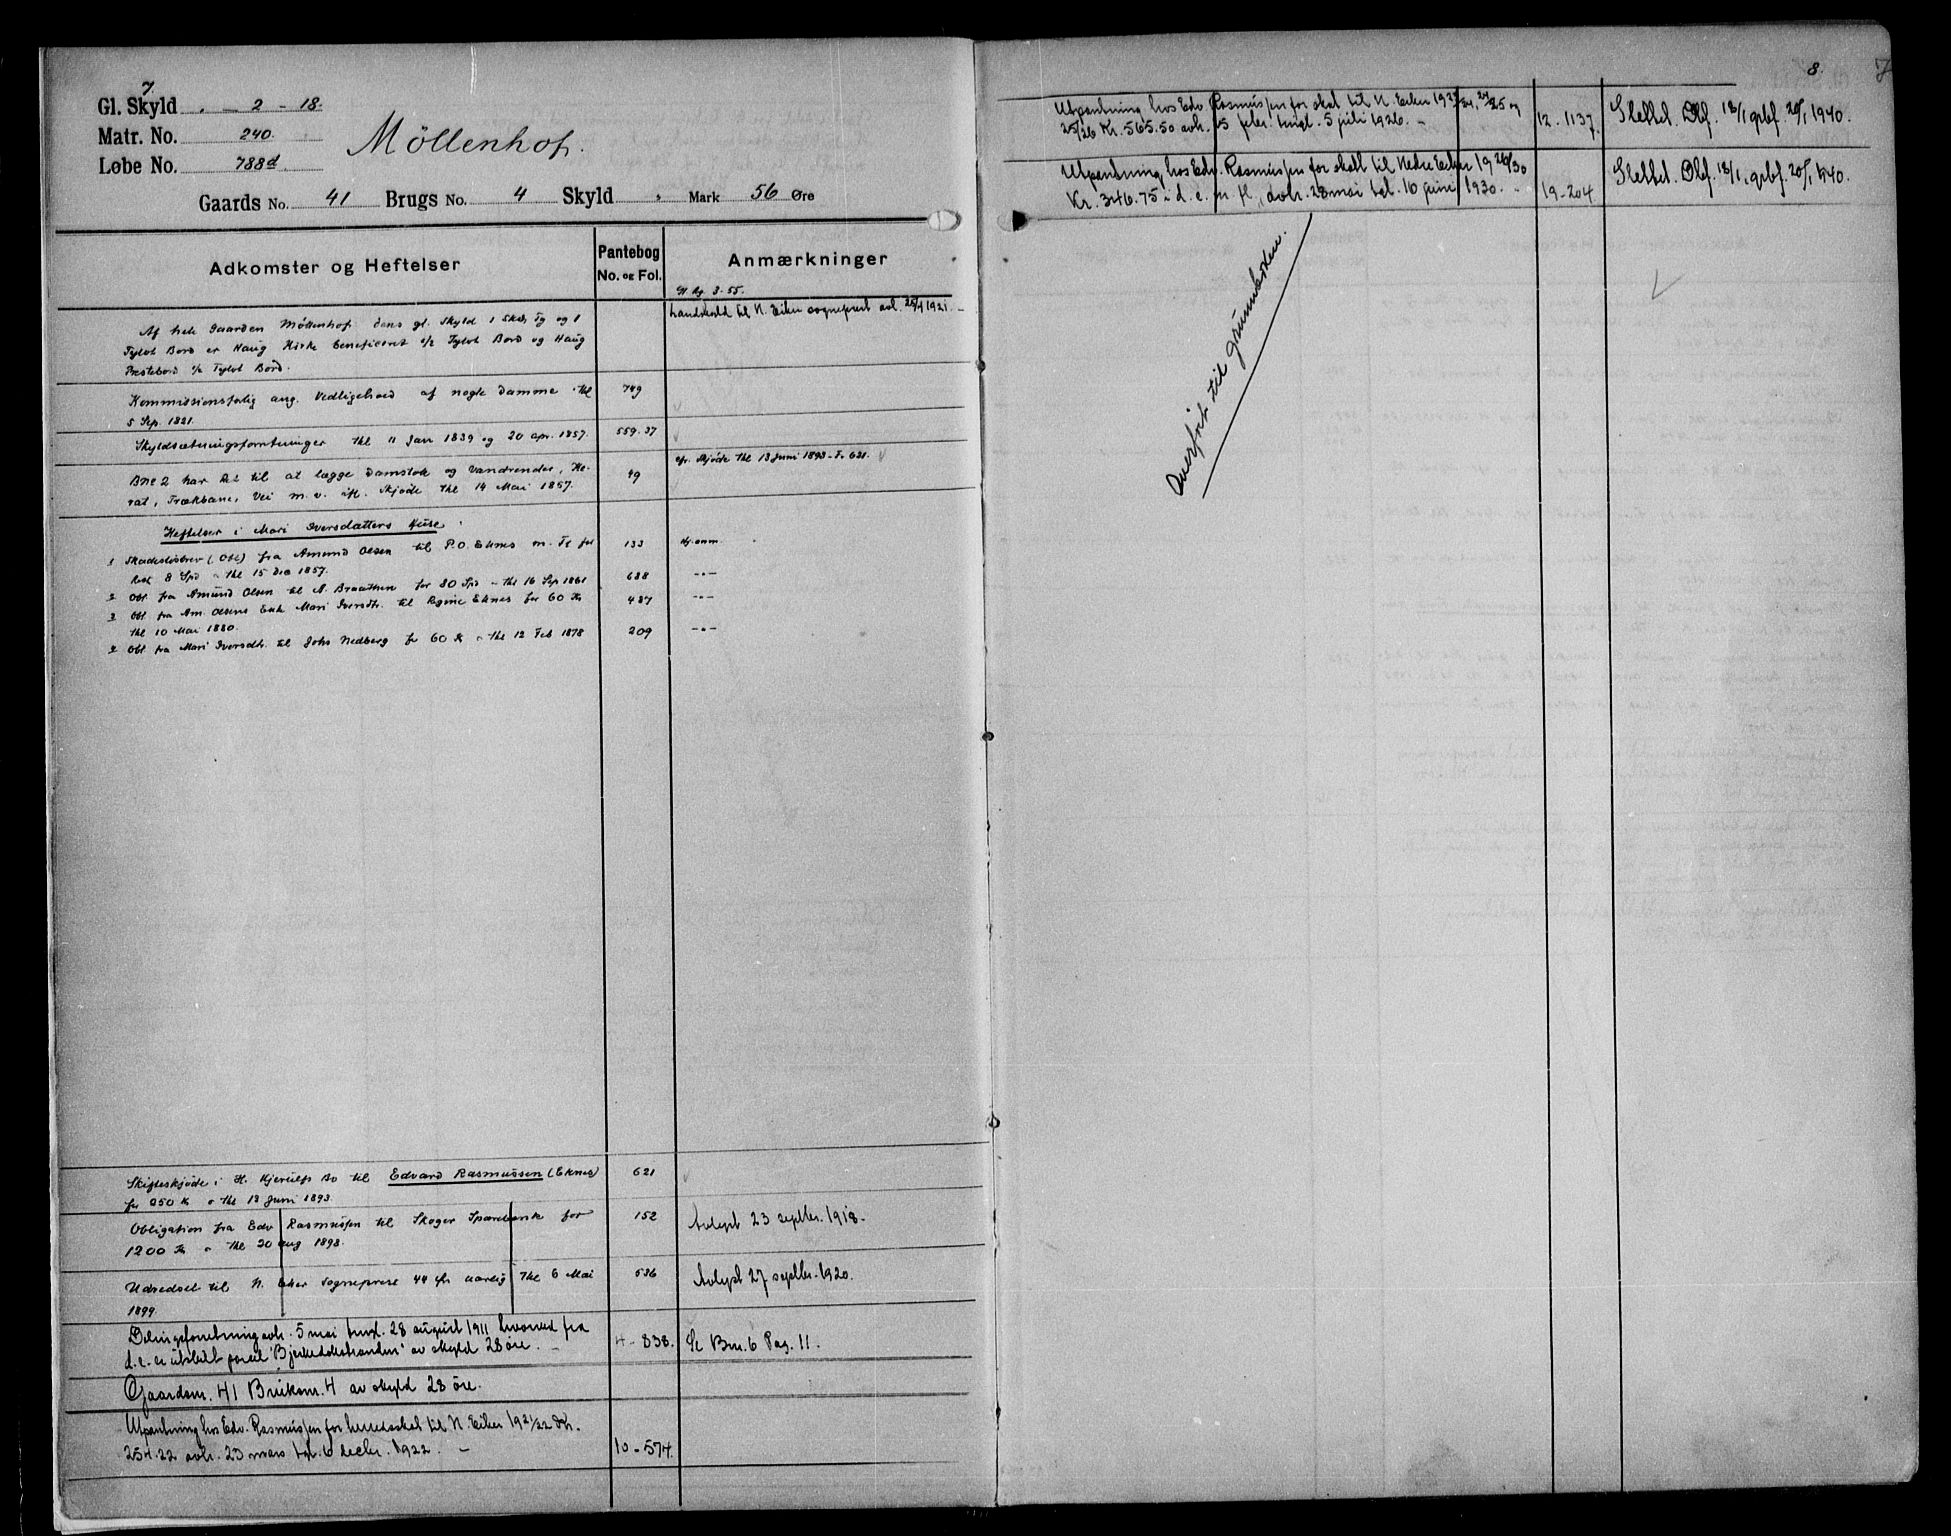 7
Gl. Skyld . – 2 – 18.
Matr. No. 240.
Løbe No. 788d
Möllenhof.
Gaards No. 41 Brugs No. 4 Skyld „ Mark 56 Øre
Adkomster og Heftelser
Pantebog
No. og Fol.
Anmærkninger
Landskyld til N. Eiker sogneprest avl. 25/4 1921. –
Af hele Gaarden Möllenhof dens gl. Skyld 1 Skd, Tg og 1
Tylvt Bord er Haug Kirke beneficeret c/2 Tylvt Bord og Haug
Prestebord c/2 Tylvt Bord.
Kommissionsforlig ang. Vedligehold af nogle Damme thl 749
5 Sep. 1821.
Skyldsætningsforretninger thl 11 Jan 1839 og 20 apr. 1857. 559.37
Bne 2 har Ret til at lægge Damstok og Vandrender, 49 cfr. Skjöde thl 13 Juni 1893 – F. 621.
Trækbane, Vei m.v. ifl. Skjöde thl 14 Mai 1857.
Heftelser i Mari Iversdatters Huse
1 Skadeslösbrev (Obl) fra Amund Olsen til P.O. Eknes m. Fl for 133 dg. anm.
Rest 8 Spd – thl 15 Dec 1857.
2 Obl. fra Amund Olsen til A. Braathen for 80 Spd – thl 16 Sep 1861 688 – „ –
3 Obl fra Am. Olsens Enke Mari Iversdtr. til Regine Eknes for 60 Kr 487 – „ –
thl 10 Mai 1880.
2 Obl fra Mari Iversdtr. til Johs Nedberg for 60 Kr – thl 12 Feb 1878 209 – „ –
Skifteskjöde i H. Kjerulfs Bo til Edvard Rasmussen (Eknes) 621
for 950 Kr – thl 13 Juni 1893.
Obligation fra Edv Rasmussen til Skoger Sparebank for 152 Avlyst 23 septbr. 1918.
1200 Kr – thl 20 aug 1893.
Udredsel til N. Eker Sogneprest 44 öre aarlig thl 6 Mai 586 Avlyst 27 septbr. 1920.
1899.
Delingsforretning avh. 5 mai tingl. 28 august 1911 hvorved fra 4 – 838. Se Bnr. 6 Pag. 11.
d. e. er utskilt parcel "Bjerkedokstranden" av skyld 28 öre. –
Gaardsnr. 41 Bruksnr. 4 av skyld 28 öre.
Utpantning hos Edv. Rasmussen for herredsskat til N. Eiker 1921/22 Kr.
254.22 avh. 23 mars tgl. 6 decbr. 1922. – 10 – 574.
8.
7
Utpantning hos Edv. Rasmussen for skat til N. Eiker 1923/24, 24/25 og 12 – 1137. Slettet. Dbf. 18/1, grbf. 20/1 1940.
25/26 Kr. 565.50 avh. 15 febr. tingl. 5 juli 1926. –
Utpantning hos Edv. Rasmussen for skatt til Nedre Eiker 1929/30 Slettet. Dbf. 18/1, grbf. 20/1 1940.
Kr. 346.75 i d. e. m. fl., avh. 28 mai tgl. 16 juni 1930. – 19 – 204
Overført til grunnboken.